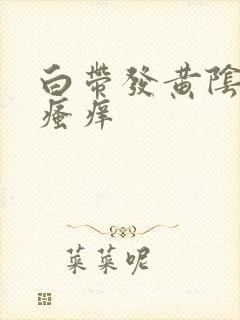 白帶發黃陰
瘙癢
菜菜呢